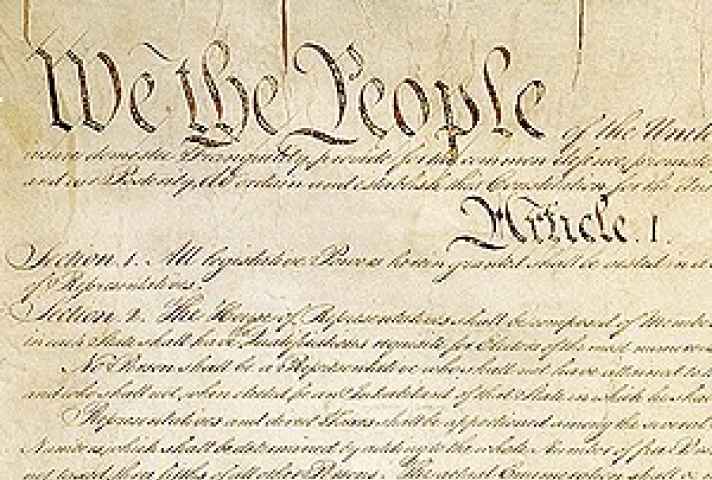 We the People of the Unit
insure domestic Tranquility, provide for the common defence, promote
and our Posterity, do ordain and establish this Constitution for the Uni
Article. I.
Section. 1. All legislative Powers herein granted shall be vested in a
of Representatives.
Section. 2. The House of Representatives shall be composed of Membe
in each State shall have the Qualifications requisite for Electors of the most numerous
No Person shall be a Representative who shall not have attained to t
and who shall not, when elected, be an Inhabitant of that State in which he sha
Representatives and direct Taxes shall be apportioned among the several
Numbers, which shall be determined by adding to the whole Number of free Pers
not taxed, three fifths of all other Persons. The actual Enumeration shall be